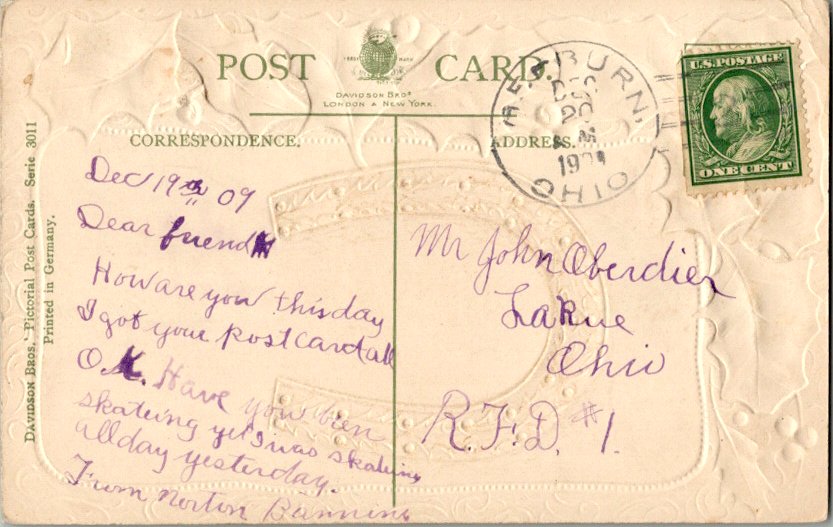 POST CARD.
DAVIDSON BROS
LONDON & NEW YORK.
CORRESPONDENCE.
ADDRESS.
U.S. POSTAGE
ONE CENT
DEC
20
OHIO
Davidson Bros.' Pictorial Post Cards. Serie 3011
Printed in Germany.
Dec 19th 09
Dear friend
How are you this day
I got your postcard all
O.K. Have you bien
skateing yet I was skateing
allday yesterday.
From Norton Banning
Mr John Oberdier
LaRue
Ohio
R.F.D. #1.